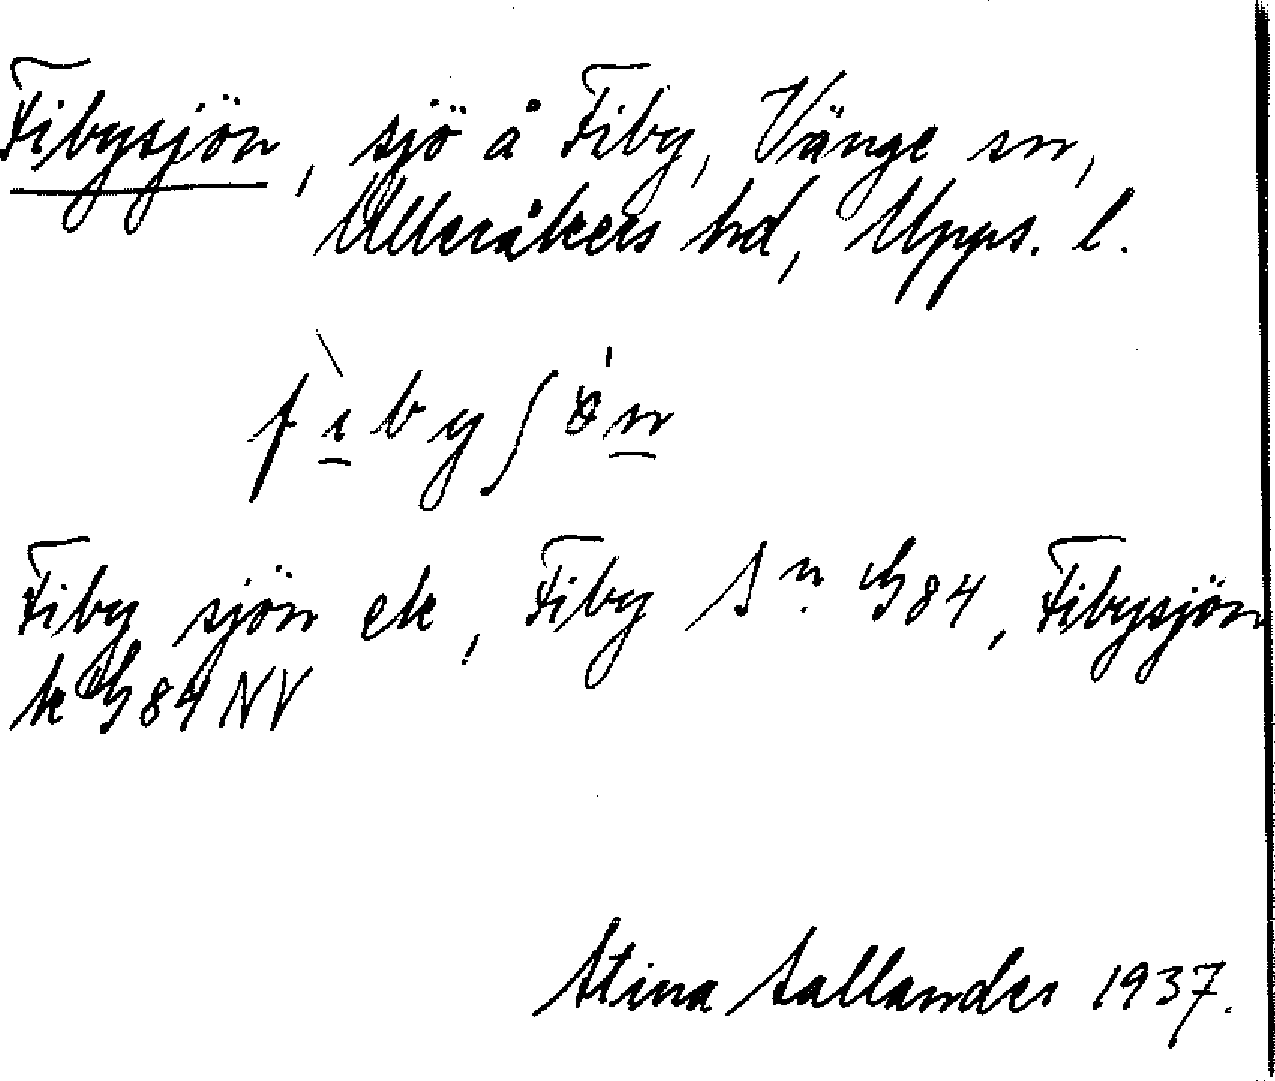 Fibysjön, sjö å Fiby, Vänge sn,
Ulleråkers hd, Upps. l.
fìbyʃö̀n
Fiby sjön ek, Fiby Sn G84, Fibysjön
k G84 NV
Stina Sallander 1937.